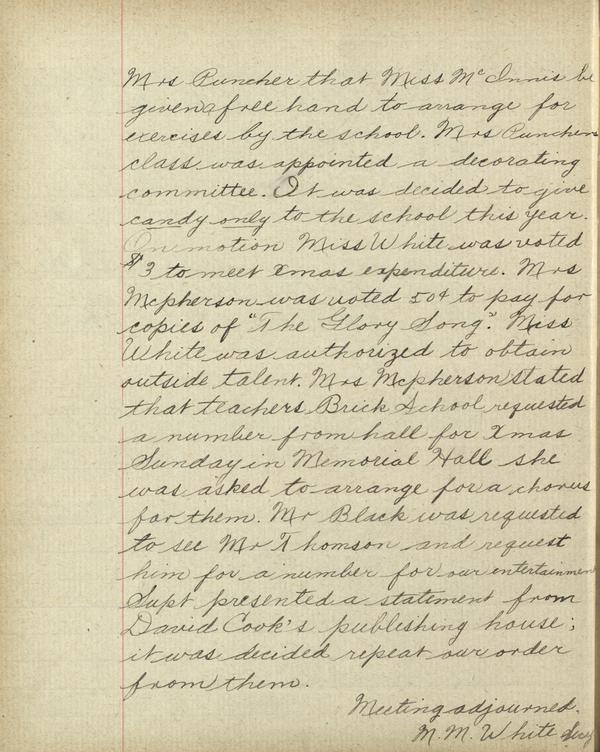 Mrs Puncher that Miss McInnis be
given a free hand to arrange for
exercises by the school. Mrs Punchers
class was appointed a decorating
committee. It was decided to give
candy only to the school this year.
On motion Miss White was voted
$3 to meet Xmas expenditure. Mrs
Mcpherson was voted 50¢ to pay for
copies of "The Glory Song". Miss
White was authorized to obtain
outside talent. Mrs Mcpherson stated
that teachers Brick School requested
a number from hall for Xmas
Sunday in Memorial Hall she
was asked to arrange for a chorus
for them. Mr Black was requested
to see Mr Thomson and request
him for a number for our entertainment
Supt presented a statement from
David Cook's publishing house;
it was decided repeat our order
from them.
Meeting adjourned.
M. M. White Secy